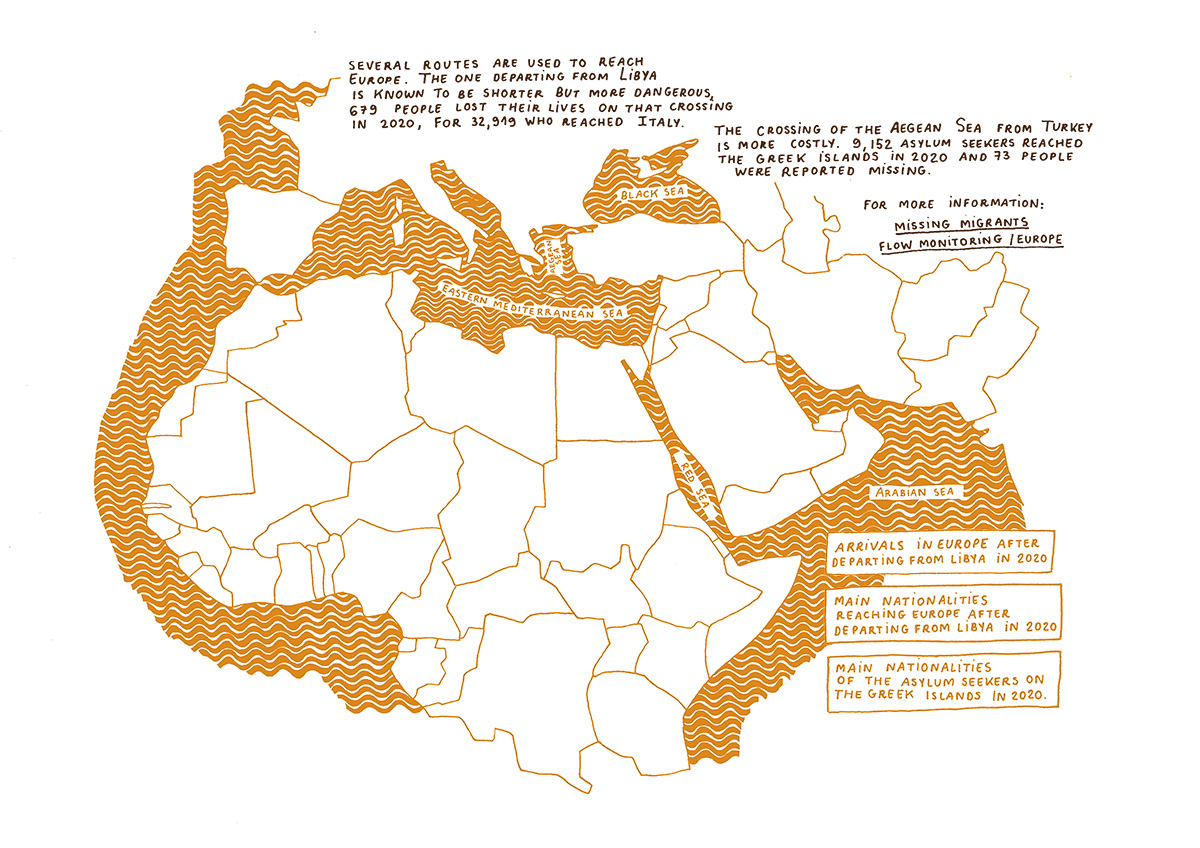 SEVERAL ROUTES ARE USED TO REACH
EUROPE. THE ONE DEPARTING FROM LIBYA
IS KNOWN TO BE SHORTER BUT MORE DANGEROUS,
679 PEOPLE LOST THEIR LIVES ON THAT CROSSING
IN 2020, FOR 32,919 WHO REACHED ITALY.
THE CROSSING OF THE AEGEAN SEA FROM TURKEY
IS MORE COSTLY. 9,152 ASYLUM SEEKERS REACHED
THE GREEK ISLANDS IN 2020 AND 73 PEOPLE
WERE REPORTED MISSING.
FOR MORE INFORMATION:
MISSING MIGRANTS
FLOW MONITORING / EUROPE
BLACK SEA
AEGEAN
SEA
EASTERN MEDITERRANEAN SEA
RED SEA
ARABIAN SEA
ARRIVALS IN EUROPE AFTER
DEPARTING FROM LIBYA IN 2020
MAIN NATIONALITIES
REACHING EUROPE AFTER
DEPARTING FROM LIBYA IN 2020
MAIN NATIONALITIES
OF THE ASYLUM SEEKERS ON
THE GREEK ISLANDS IN 2020.